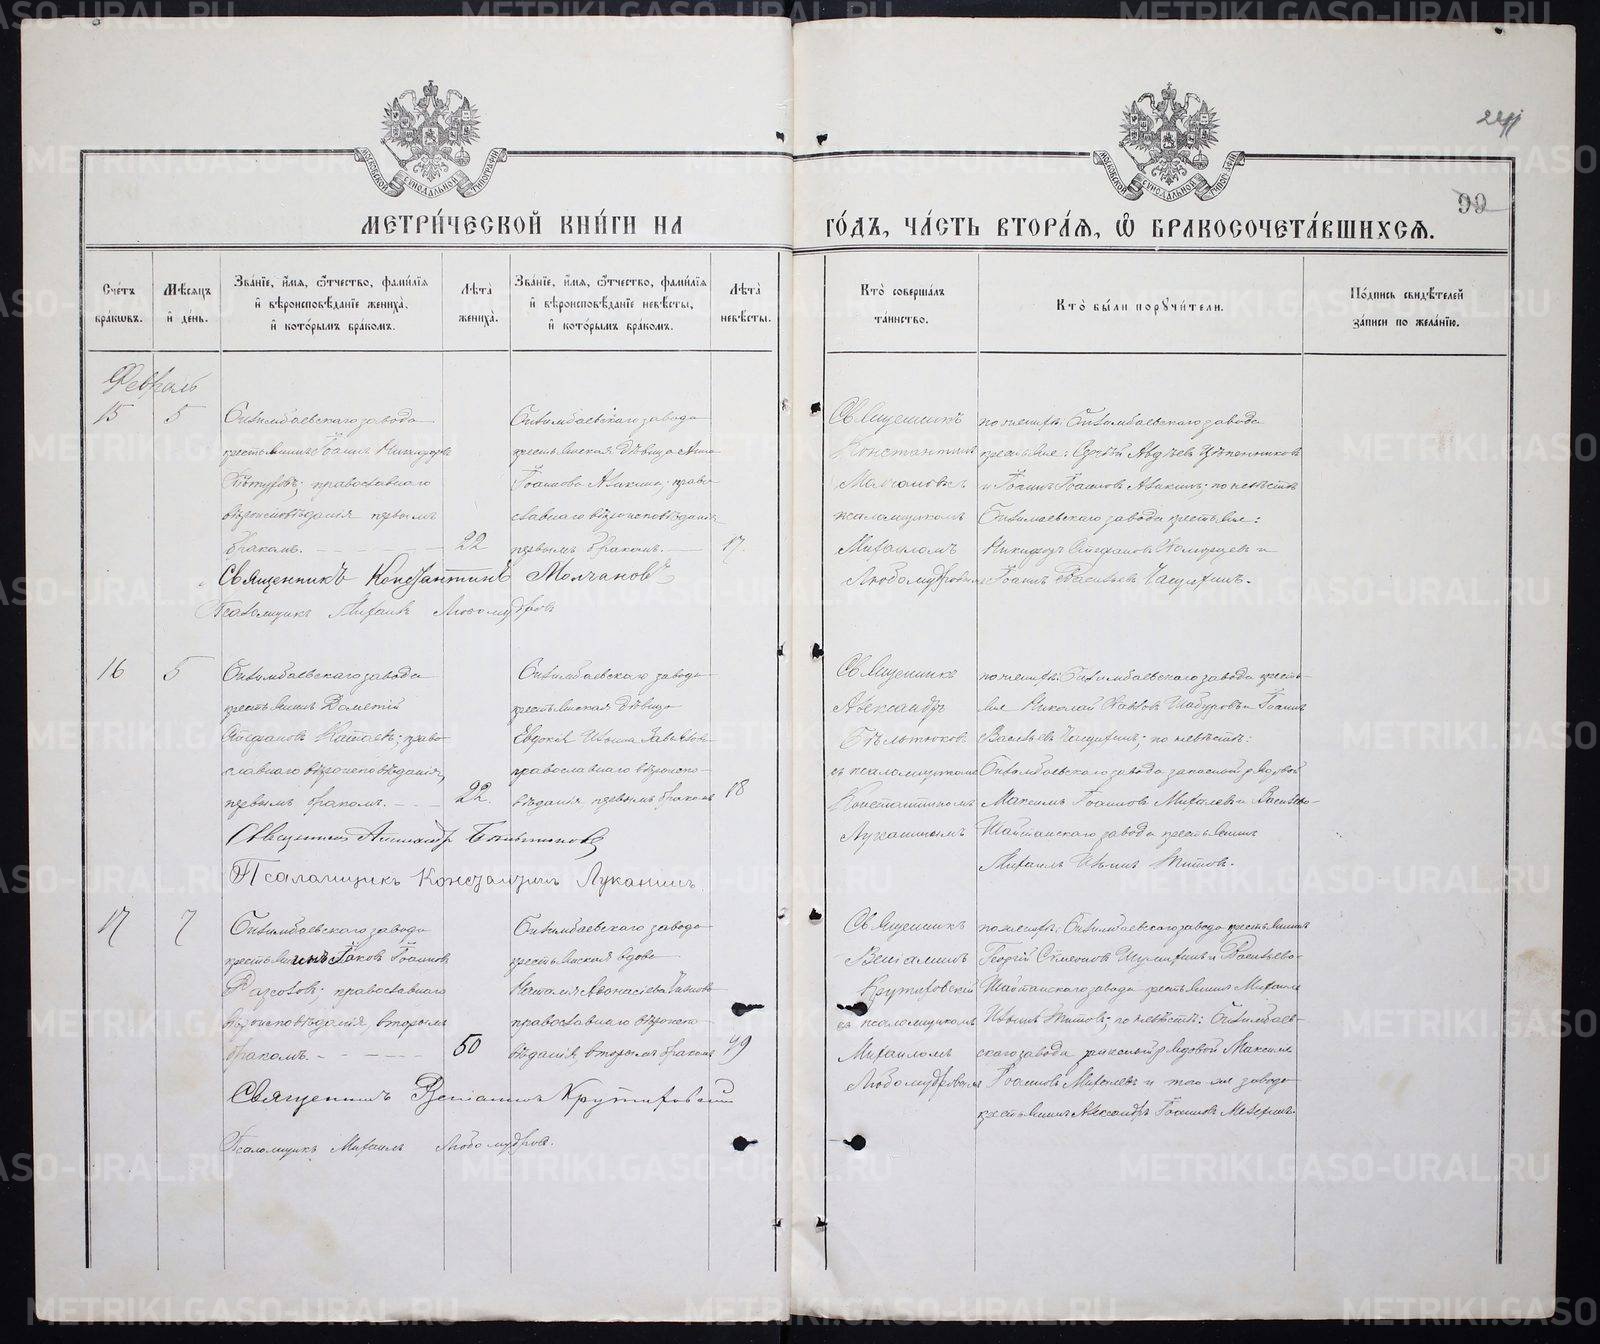 МЕТРИ́ЧЕСКОЙ КНИ́ГИ НА ГО́ДЪ, ЧА́СТЬ ВТОРА́Я, Ѡ҆ БРАКОСОЧЕТА́ВШИХСѦ.
99
Сче́тъ бра́кѡвъ.
Мѣ́сѧцъ и҆ де́нь.
Зва́нїе, и҆́мѧ, ѻ҆́тчество, фами́лїѧ и҆ вѣроисповѣ́данїе жениха̀. и҆ кото́рымъ бра́комъ.
Лѣ́та̀ жениха̀.
Зва́нїе, и҆́мѧ, ѻ҆́тчество, фами́лїѧ и҆ вѣроисповѣ́данїе невѣ́сты, и҆ кото́рымъ бра́комъ.
Лѣ́та̀ невѣ́сты.
Кто̀ соверша́лъ та́инство.
Кто̀ бы́ли порꙋчи́тели.
По́дпись свидѣ́телей за́писи по жела́нїю.
Февраль
15
5
Билимбаевскаго завода
крестьянинъ Іоаннъ
православнаго
вѣроисповѣданія первымъ
бракомъ.
22
Билимбаевскаго завода
крестьянская дѣвица Анна
Іоаннова Аликина; право-
славнаго вѣроисповѣданія
первымъ бракомъ.
17.
Священникъ
Константинъ
Молчановъ съ
псаломщикомъ
Михаиломъ
Любомудровымъ
по женихѣ: Билимбаевскаго завода
крестьяне: Сергѣй Авдѣевъ
и Іоаннъ Іоанновъ Аликинъ; по невѣстѣ
Билимбаевскаго завода крестьяне:
Никифоръ Стефановъ и
Іоаннъ Васильевъ
Священникъ Константинъ Молчановъ
Псаломщикъ Михаилъ Любомудровъ
16
5
Билимбаевскаго завода
крестьянинъ Дометій
Стефановъ Катаевъ; право-
славнаго вѣроисповѣданія,
первымъ бракомъ.
22.
Билимбаевскаго завода
крестьянская дѣвица
Евдокія Ивана
православнаго вѣроиспо-
вѣданія первымъ бракомъ
18
Священникъ
Александръ
Бѣльтюковъ
съ псаломщикомъ
Константиномъ
Луканинымъ
по женихѣ: Билимбаевскаго завода кресть-
яне Николай и Іоаннъ
Васильевъ; по невѣстѣ:
Билимбаевскаго завода запасной рядовой
Максимъ Іоанновъ Михалевъ и Васильево-
Шайтанскаго завода крестьянинъ
Михаилъ Ивановъ Титовъ.
Священникъ Александръ Бѣльтюковъ
Псаломщикъ Константинъ Луканинъ.
17
7
Билимбаевскаго завода
крестьянинъ Іаковъ Іоанновъ
православнаго
вѣроисповѣданія, вторымъ
бракомъ.
50
Билимбаевскаго завода
крестьянская вдова
Наталія Аѳанасіева
православнаго вѣроиспо-
вѣданія, вторымъ бракомъ
49
Священникъ
Веніаминъ
Крутиховскій
съ псаломщикомъ
Михаиломъ
Любомудровымъ
по женихѣ: Билимбаевскаго завода крестьянинъ
Георгій Симеоновъ и Васильево-
Шайтанскаго завода крестьянинъ Михаилъ
Ивановъ Титовъ; по невѣстѣ: Билимбаев-
скаго завода запасный рядовой Максимъ
Іоанновъ Михалевъ и того же завода
крестьянинъ Александръ Іоанновъ
Священникъ Веніаминъ Крутиховскій
Псаломщикъ Михаилъ Любомудровъ.
METRIKI.GASO-URAL.RU